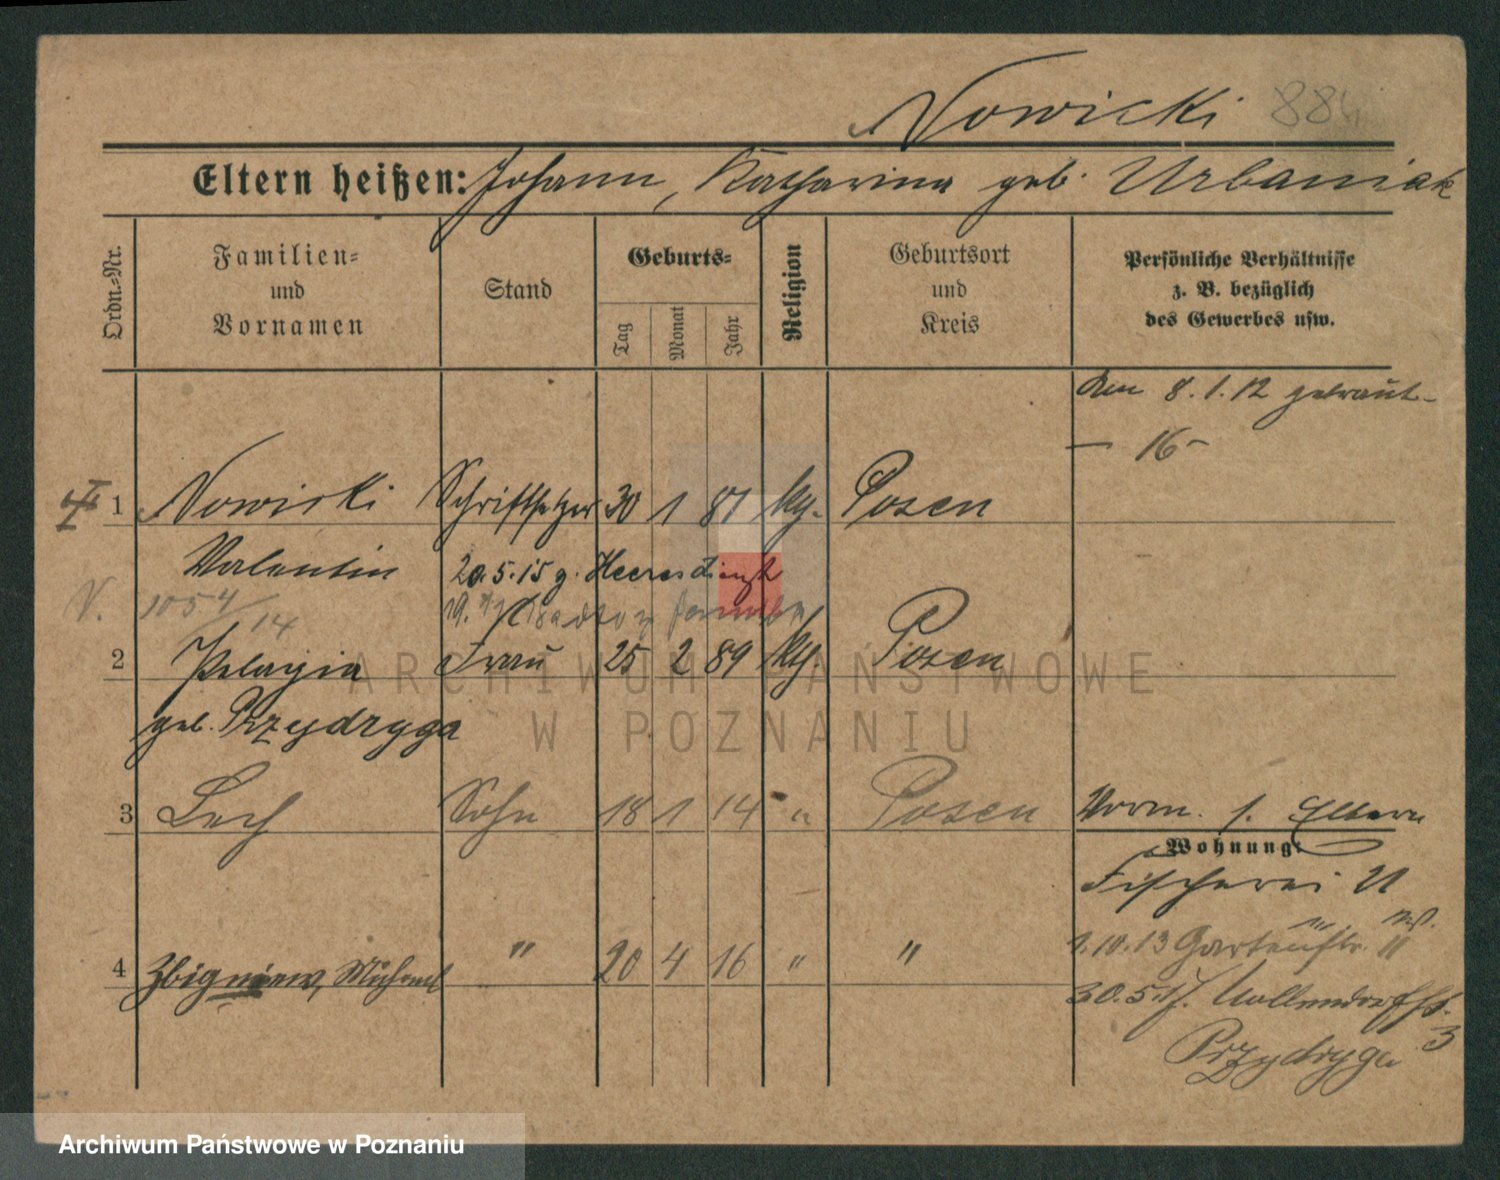 Nowicki 884
Eltern heißen: Johann, Katharina geb. Urbaniak
Ordn.-Nr.
Familien-
und
Vornamen
Stand
Geburts-
Tag
Monat
Jahr
Religion
Geburtsort
und
Kreis
Persönliche Verhältnisse
z. B. bezüglich
des Gewerbes usw.
Am 8.1.12 getraut-
- 16 -
1 Nowicki Schriftsetzer 30 1 87 kth. Posen
Valentin 20.5.15 z. Heeresdienst
V. 1054/14 19.
2 Pelagia Frau 25 2 89 kth. Posen
geb. Przydryga
3 Lech Sohn 18 1 14 " Posen Vorm. s. Eltern
Wohnung:
Fischerei 21
4 Zbigniew, Michael " 20 4 16 " " 1.10.13 Gartenstr. 11
30.5.17. Nollendorfstr. 3
Przydryga
ARCHIWUM PAŃSTWOWE
W POZNANIU
Archiwum Państwowe w Poznaniu